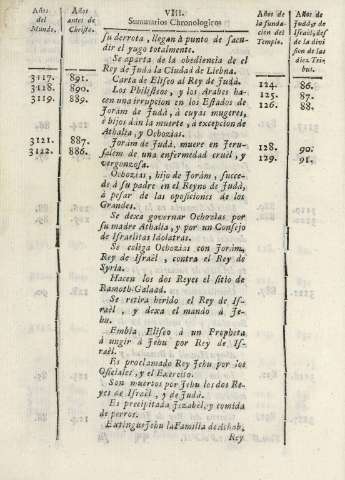 Años del Mundo.
Años antes de Christo.
VIII.
Sumarios Chronologicos
Años de la fundacion del Temple.
Años de Judà, y de Israël, desde la division de las diez Tribus.
su derrota, llegan à punto de sacudir
el yugo totalmente.
Se aparta de la obediencia de el
Rey de Judà la Ciudad de Liebna.
3117. 891. Carta de Eliseo al Rey de Judà. 124. 86.
3118. 890. Los Philisteos, y los Arabes hacen 125. 87.
3119. 889. una irrupcion en los Estados de 126. 88.
Joràm de Judà, à cuyas mugeres,
è hijos dàn la muerte, à excepcion de
Athalia, y Ochozias.
3121. 887. Joràm de Judà, muere en Jerusalèm 128. 90.
3122. 886. de una enfermedad cruèl, y 129. 91.
vergonzosa.
Ochozias, hijo de Joràm, succede
à su padre en el Reyno de Judà,
à pesar de las oposiciones de los
Grandes.
Se dexa governar Ochozias por
su madre Athalia, y por un Consejo
de Israelitas Idolatras.
Se coliga Ochozias con Joràm,
Rey de Israèl, contra el Rey de
Syria.
Hacen los dos Reyes el sitio de
Ramoth-Galaad.
Se retira herido el Rey de Israèl
, y dexa el mando à Jehu.
Embia Eliseo à un Propheta
à ungir à Jehu por Rey de Israèl.
Es proclamado Rey Jehu por los
Oficiales, y el Exercito.
Son muertos por Jehu los dos Reyes
de Israèl, y de Judà.
Es precipitada Jezabèl, y comida
de perros.
Extingue Jehu la Familia de Achab,
Rey